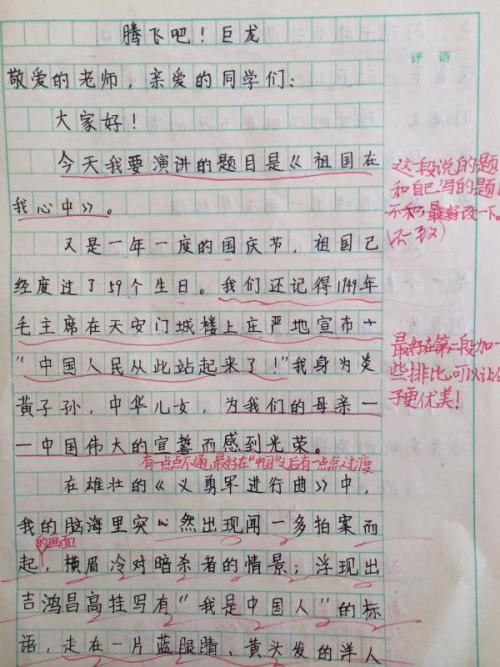 腾飞吧！巨龙
评语
敬爱的老师，亲爱的同学们：
大家好！
今天我要演讲的题目是《祖国在
我心中》。
这段说的题
和自己写的题
不和，最好改一下。
又是一年一度的国庆节，祖国已
经度过了59个生日。我们还记得1949年
毛主席在天安门城楼上庄严地宣布—
"中国人民从此站起来了！"我身为炎
黄子孙，中华儿女，为我们的母亲—
—中国伟大的宣誓而感到光荣。
最好在第二段加一
些排比，可以让
子更优美！
有一点点不通，最好在"中国"之后有一点点过度
在雄壮的《义勇军进行曲》中，
我的脑海里突然出现闻一多拍案而
的画面
起，横眉冷对暗杀者的情景；浮现出
吉鸿昌高挂写有"我是中国人"的标
语，走在一片蓝眼睛、黄头发的洋人